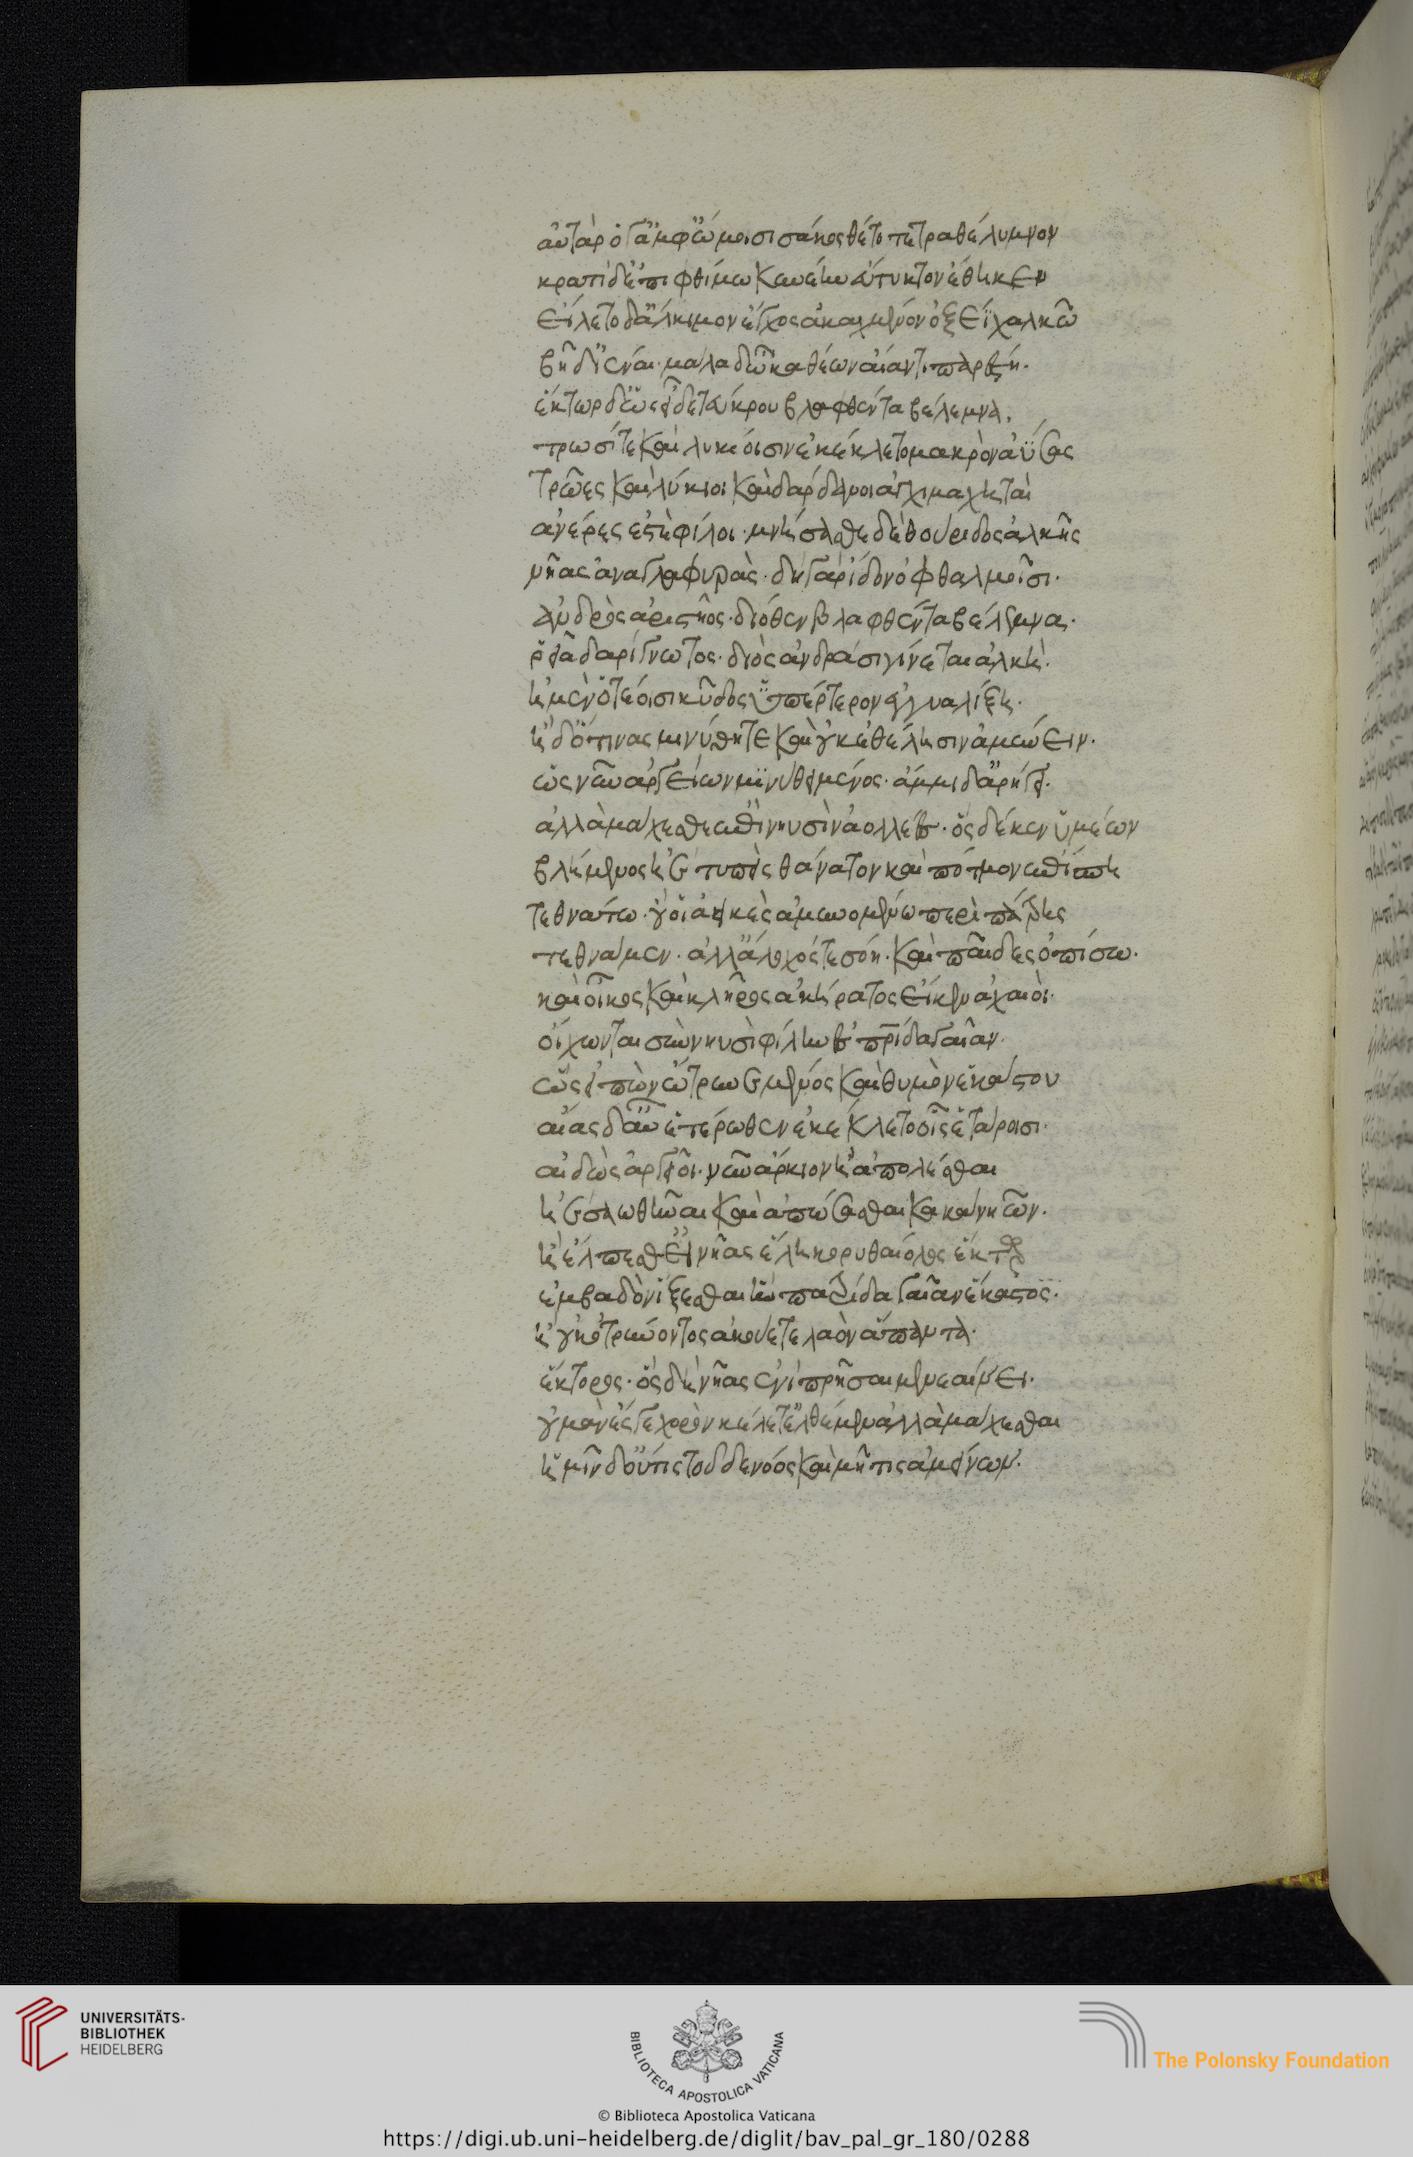 αὐτὰρ ὅγ ἀμφ ὤμοισι σάκος θέτο τετραθέλυμνον
κρατὶ δ ἐπ ιφθίμω κυνέην εὔτυκτον ἔθηκεν
εἵλετο δ ἄλκιμον ἔγχος ἀκαχμένον ὀξέϊ χαλκῶ
βῆ δ ἰέναι· μάλα δ ὦκα θέων αἴαντι παρέστη·
ἕκτωρ δ ὡς εἶδε τεύκρου βλαφθέντα βέλεμνα.
τρωσί τε καὶ λυκίοισιν ἐκέκλετο μακρὸν ἀΰσας
τρῶες καὶ λύκιοι καὶ δάρδανοι ἀγχιμαχηταὶ
ἀνέρες ἐστὲ φίλοι· μνήσασθε δὲ θούριδος ἀλκῆς
νῆας ἀνα γλαφυρὰς· δὴ γὰρ ἴδον ὀφθαλμοῖσι·
ἀνδρὸς ἀριστῆος· διόθεν βλαφθέντα βέλεμνα·
ῥεῖα δ ἀρίγνωτος· διὸς ἀνδράσι γίνεται ἀλκὴ·
ἠμὲν ὅτέοισι κῦδος ὑπέρτερον ἐγγυαλίξη·
ἠδ ὅτινας μινύθη τε καὶ οὐκ ἐθέλησιν ἀμύνειν·
ὡς νῦν ἀργείων μινύθει μένος· ἄμμι δ ἀρήγει·
ἀλλὰ μάχεσθε ἐπὶ νηυσὶν ἀολλέες· ὃς δέ κεν ὑμέων
βλήμενος ἠὲ τυπεὶς θάνατον καὶ πότμον ἐπίσπη
τεθνάτω· οὔ οἱ ἀεικὲς ἀμυνομένω περὶ πάτρης
τεθνάμεν· ἀλλ ἄλοχός τε σόη· καὶ παῖδες ὀπίσω·
καὶ οἶκος καὶ κλῆρος ἀκήρατος εἴ κεν ἀχαιοὶ·
οἴχωνται σὺν νηυσὶ φίλην ἐς πρίδα γαῖαν·
ὣς εἰπὼν ὤτρυνε μένος καὶ θυμὸν ἑκάστου
αἴας δ αὖ ἑτέρωθεν ἐκέκλετο οἷς ἑτάροισι·
αἰδὼς ἀργεῖοι· νῦν ἄρκιον ἢ ἀπολέσθαι
ἠὲ σαωθῆναι καὶ ἀπώσασθαι κακὰ νηῶν·
ἢ ἔλπεσθ ἢν νῆας ἕλη κορυθαίολος ἕκτωρ
ἐμβαδὸν ἵξεσθαι ἣν πατρίδα γαῖαν ἕκαστος·
ἢ οὐκ ὀτρύνοντος ἀκούετε λαὸν ἅπαντα·
ἕκτορος· ὃς δὴ νῆας ἐνιπρῆσαι μενεαίνει·
οὐ μὰν ἔς γε χορὸν κέλετ ἐλθέμεν ἀλλὰ μάχεσθαι
ἡμῖν δ οὔτις τοῦδε νόος καὶ μῆτις ἀμείνων·
UNIVERSITÄTS-
BIBLIOTHEK
HEIDELBERG
BIBLIOTECA APOSTOLICA VATICANA
The Polonsky Foundation
© Biblioteca Apostolica Vaticana
https://digi.ub.uni-heidelberg.de/diglit/bav_pal_gr_180/0288